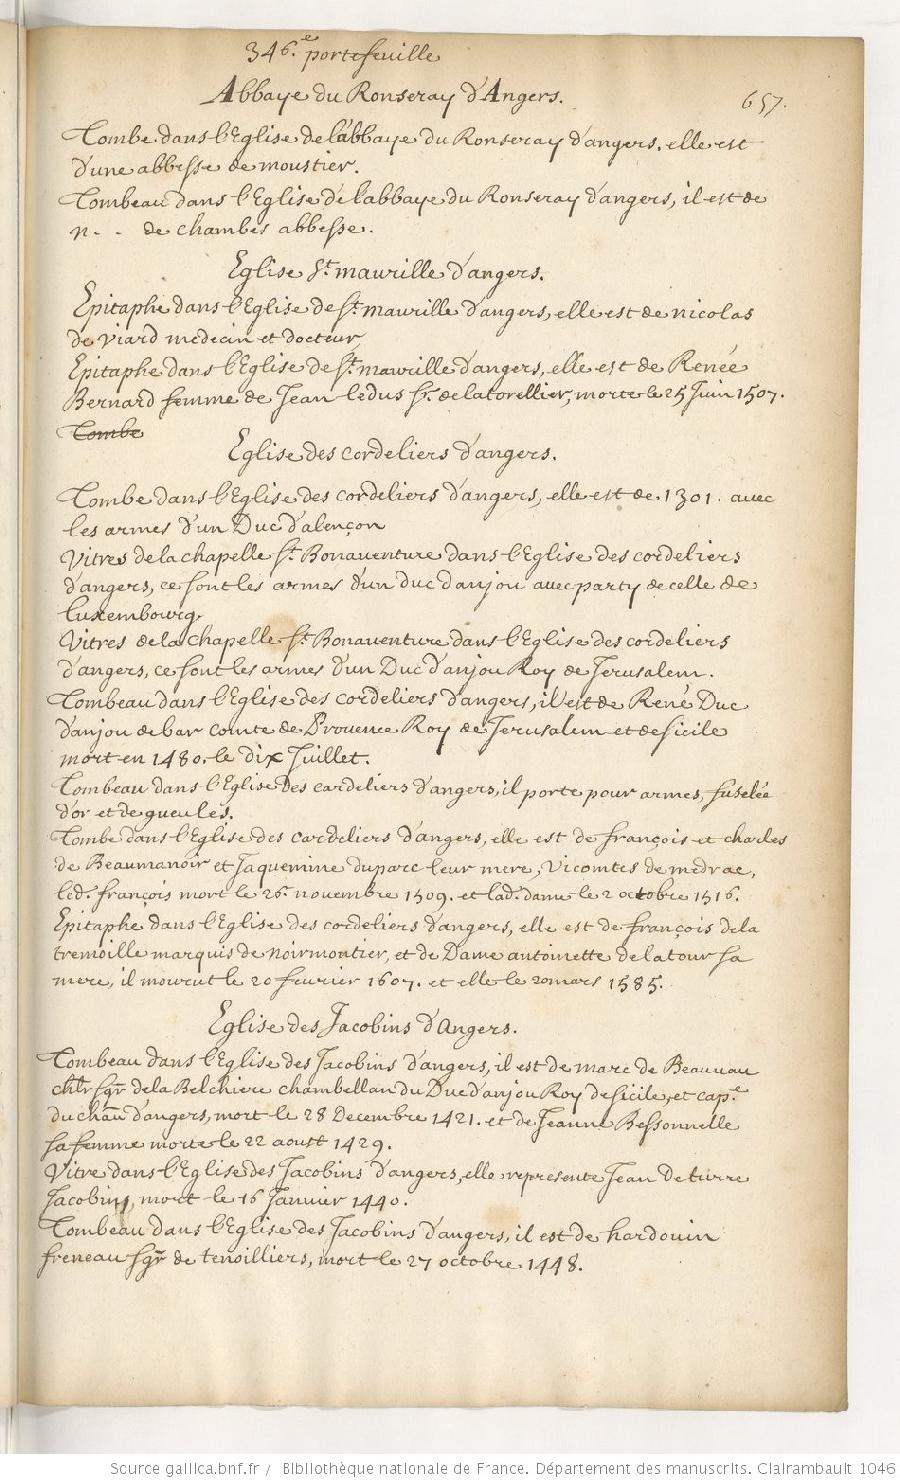 346.e portefeuille
Abbaye du Ronseray d'Angers.
657.
Tombe dans l'Eglise de l'abbaye du Ronseray d'angers, elle est
d'une abbesse de moustier.
Tombeau dans l'Eglise de l'abbaye du Ronseray d'angers, il est de
n. . de chambes abbesse.
Eglise St. maurille d'angers.
Epitaphe dans l'Eglise de St. maurille d'angers, elle est de nicolas
de viard medecin et docteur
Epitaphe dans l'Eglise de St. maurille d'angers, elle est de Renée
Bernard femme de Jean ledus Sr. de latorellier, morte le 25 Juin 1507.
Tombe
Eglise des cordeliers d'angers.
Tombe dans l'Eglise des cordeliers d'angers, elle est de 1301. avec
les armes d'un Duc d'alençon
Vitres de la chapelle St. Bonaventure dans l'Eglise des cordeliers
d'angers, ce sont les armes d'un duc d'anjou avec party de celle de
luxembourg.
Vitres de la chapelle St. Bonaventure dans l'Eglise des cordeliers
d'angers, ce sont les armes d'un Duc d'anjou Roy de Jerusalem.
Tombeau dans l'Eglise des cordeliers d'angers, il est de René Duc
d'anjou de bar comte de Provence Roy de Jerusalem et de sicile
mort en 1480. le dix Juillet.
Tombeau dans l'Eglise des cordeliers d'angers, il porte pour armes, fuselée
d'or et de gueules.
Tombe dans l'Eglise des cordeliers d'angers, elle est de françois et charles
de Beaumanoir et Jaquemine duparc leur mere, Vicomtes de medrac,
led. françois mort le 26. novembre 1509. et lad. dame le 2 octobre 1516.
Epitaphe dans l'Eglise des cordeliers d'angers, elle est de françois de la
tremoille marquis de noirmontier, et de Dame antoinette de latour sa
mere, il mourut le 20 fevrier 1607. et elle le 20 mars 1585.
Eglise des Jacobins d'Angers.
Tombeau dans l'Eglise des Jacobins d'angers, il est de marc de Beauvau
chlr sgr de la Belchiere chambellan du Duc d'anjou Roy de sicile, et cap.e
du chau d'angers, mort le 28 Decembre 1421. et de Jeanne Bessonnelle
sa femme morte le 22 aoust 1429.
Vitre dans l'Eglise des Jacobins d'angers, elle represente Jean de turre
Jacobins, mort le 16 Janvier 1440.
Tombeau dans l'Eglise des Jacobins d'angers, il est de hardouin
freneau sgr de tenoilliers, mort le 27 octobre 1448.
Source gallica.bnf.fr / Bibliothèque nationale de France. Département des manuscrits. Clairambault 1046